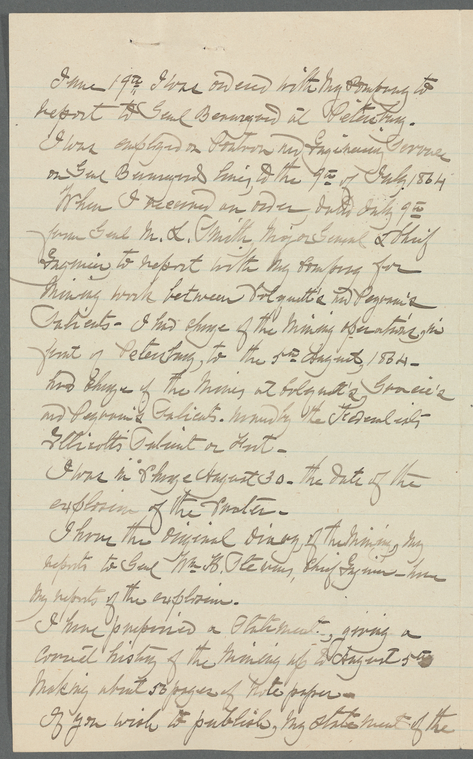 June 19th I was ordered with my Company to
report to Genl Beauregard at Petersburg.
I was employed on Pontoon and Engineering Service
on Genl Beauregards lines, to the 9th of July, 1864
When I received an order, dated July 9th
from Genl M. L. Smith, Major General & Chief
Engineer, to report with my Company for
Mining work between Colquitt's and Pegram's
Salients - I had charge of the Mining operations, in
front of Petersburg, to the 5th August, 1864 -
had charge of the Mines at Colquitt's, Gracie's
and Pegram's Salients. named by the Federals
Elliott's Salient or Fort -
I was in charge August 30 - the date of the
explosion of the Crater -
I have the original Diary, of the Mining, my
reports to Genl Wm H. Stevens, Chief Engineer - have
my reports of the explosion.
I have prepared a Statement, giving a
correct history of the Mining up to August 5th
making about 50 pages of Note paper -
If you wish to publish, my statement of the